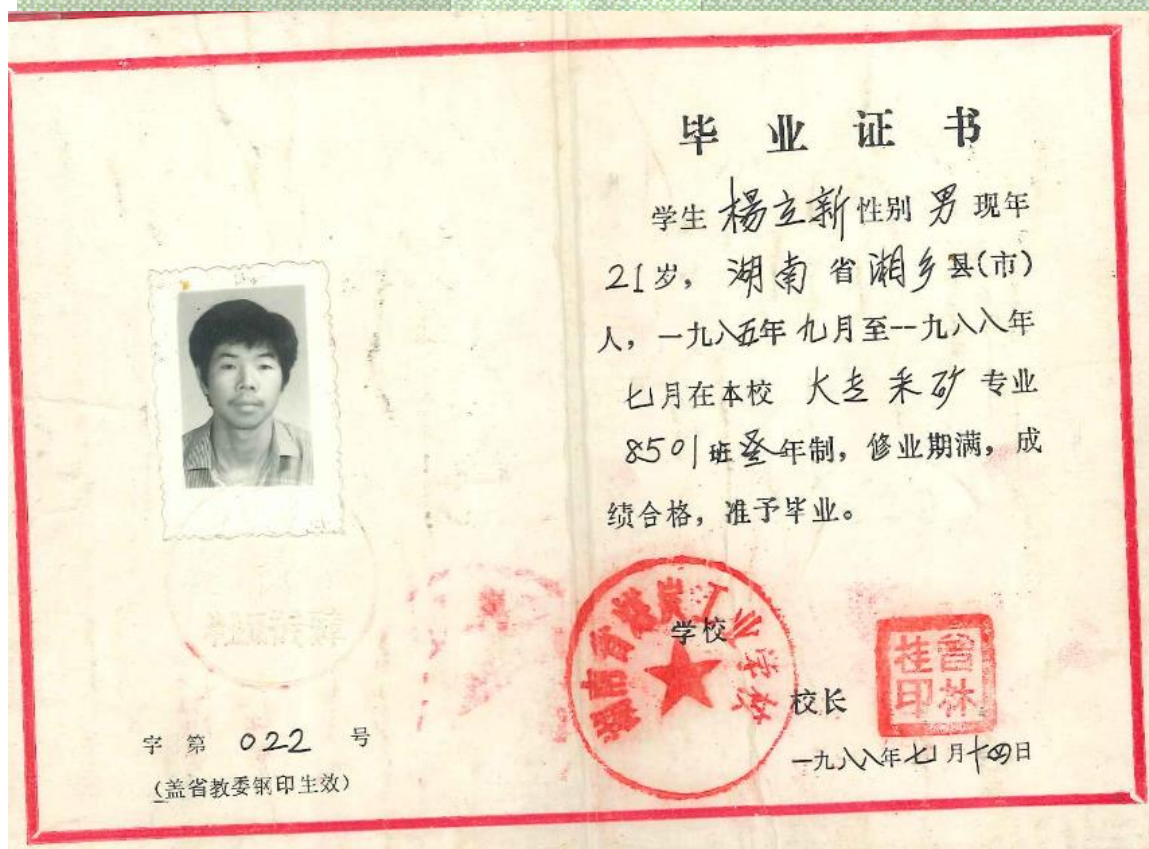 毕业证书
学生 楊立新 性别 男 现年
21岁，湖南省湘乡县(市)
人，一九八五年九月至一九八八年
七月在本校 大专 采矿 专业
8501班叁年制，修业期满，成
绩合格，准予毕业。
湖南省煤炭工业学校
学校
校长
曾林桂印
一九八八年七月十四日
字 第 022 号
(盖省教委钢印生效)